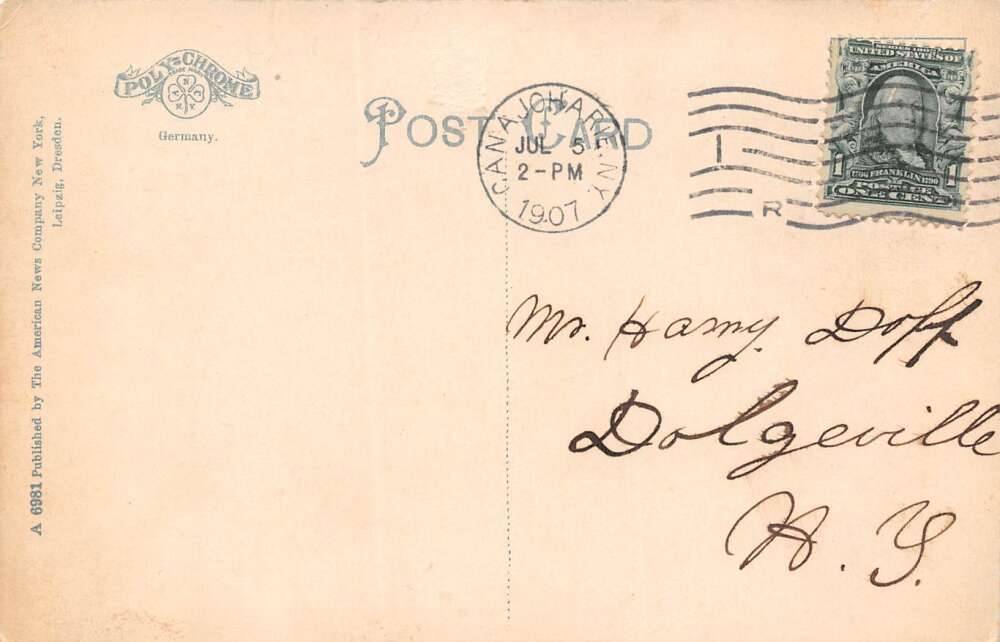 POLY-CHROME
Germany.
POST CARD
CANAJOHARIE N.Y.
JUL 5
2-PM
1907
R
SERIES 1902
UNITED STATES OF
AMERICA
1706 FRANKLIN 1790
1 1
POSTAGE
ONE CENT
Mr. Harry Doff
Dolgeville
N. Y.
A 6981 Published by The American News Company New York,
Leipzig, Dresden.